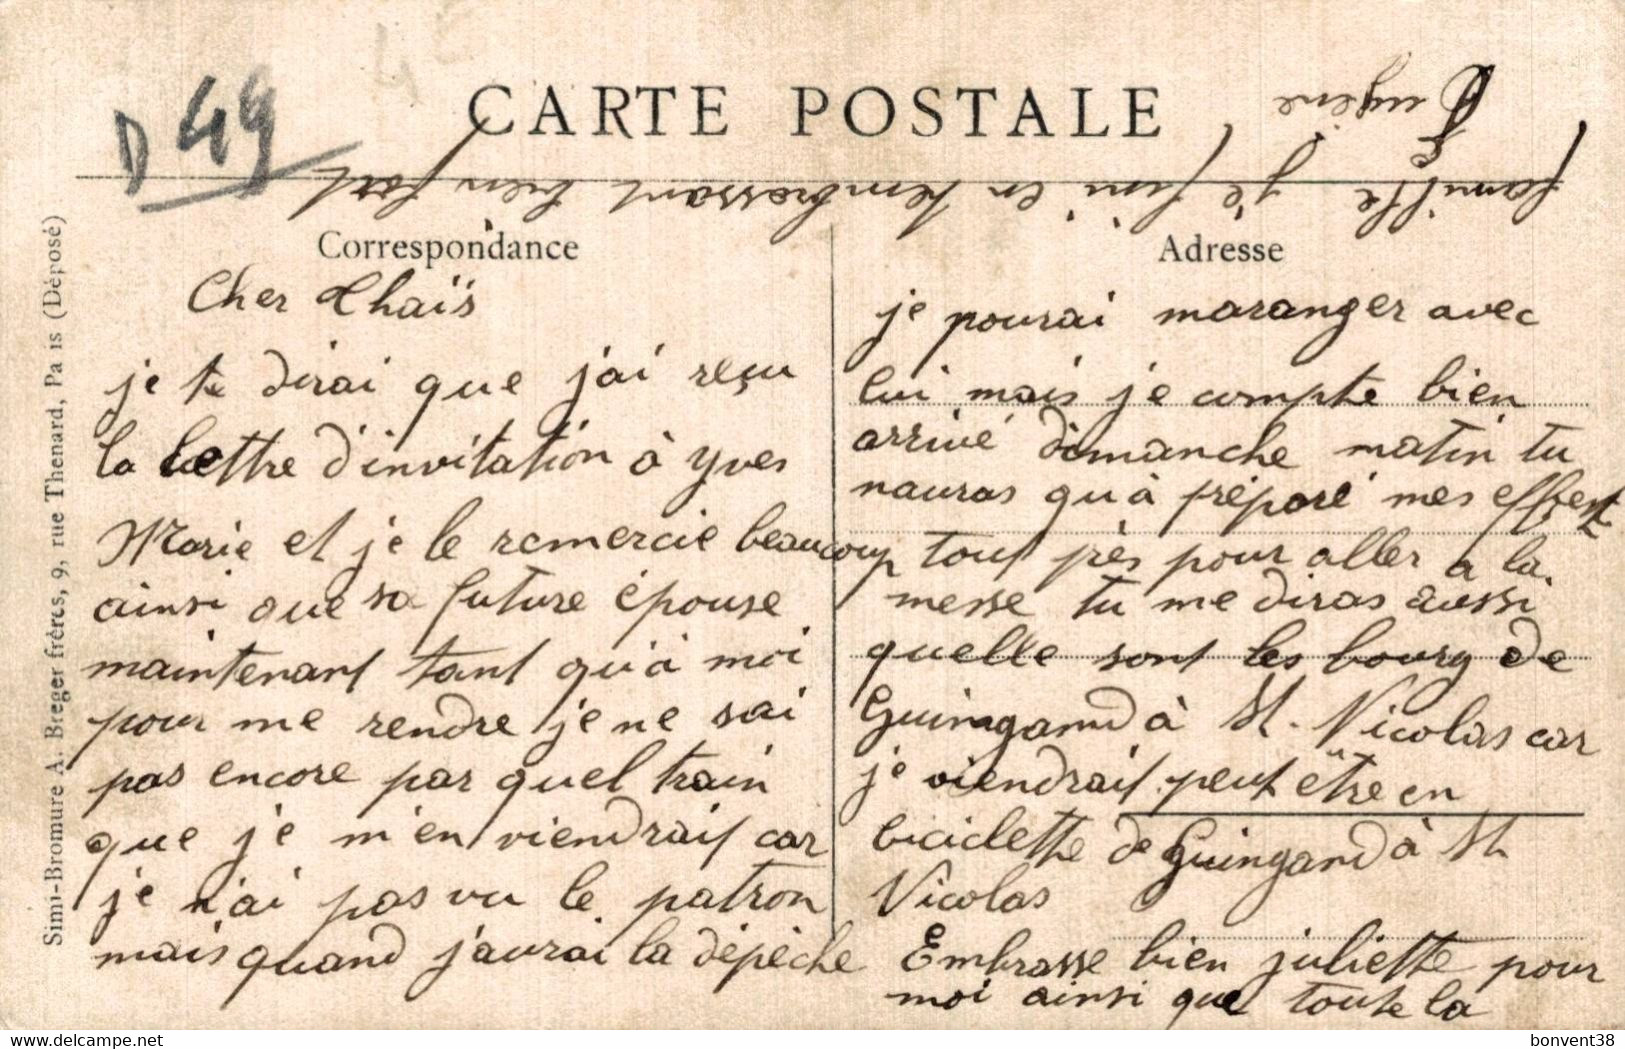 D 49
CARTE POSTALE
Correspondance
Adresse
Simi-Bromure A. Breger frères, 9, rue Thenard, Pa is (Déposé)
Cher Thaïs
je te dirai que j'ai reçu
la lettre d'invitation à Yves
Marie et je le remercie beaucoup
ainsi que sa future épouse
maintenant tant qu'à moi
pour me rendre je ne sai
pas encore par quel train
que je m'en viendrait car
je n'ai pas vu le patron
mais quand j'aurai la dépèche
je pourai maranger avec
lui mais je compte bien
arrivé dimanche matin tu
nauras qu'à préparé mes effest
tout près pour aller a la
messe tu me diras aussi
quelle sont les bourg de
Guingand à St. Nicolas car
je viendrait peut être en
biciclette de Guingand à St
Nicolas
Embrasse bien juliette pour
moi ainsi que toute la
famille je fini en t'embrassant bien fort
Eugène
bonvent38